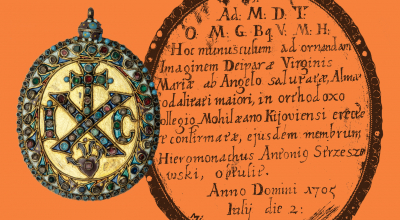 Ad: M: D: T:
O. M: G: Bq. V: M: H:
Hoc munusculum ad ornandam
Imaginem Deiparæ Virginis
Mariæ ab Angelo salutatæ, Almæ
sodalitati maiori, in orthodoxo
Collegio Mohilæano Kijoviensi erectæ
et confirmatæ, ejusdem membrum
Hieromonachus Antonig Strzeszo
wski, obtulit.
Anno Domini 1705
Iulij die 2:
IXC